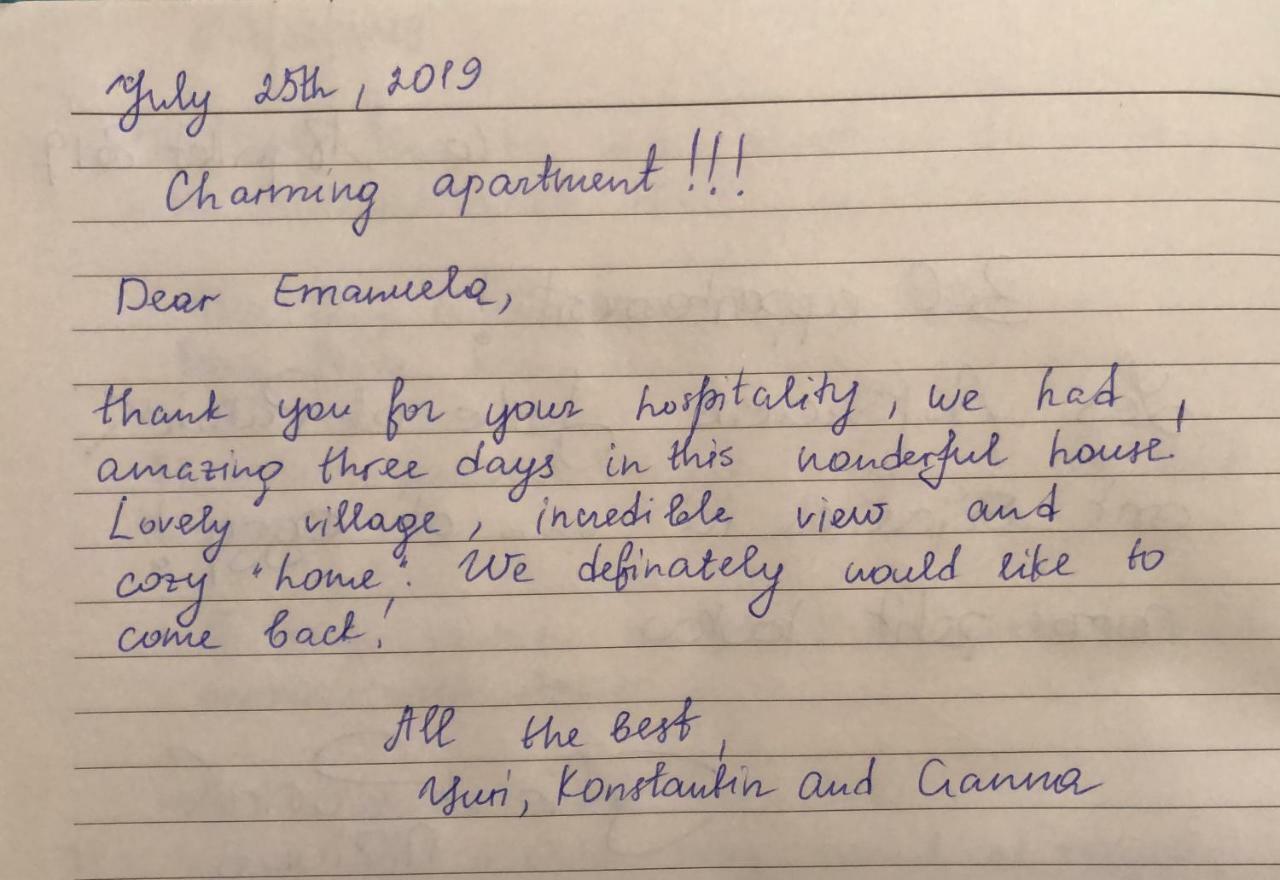 July 25th, 2019
Charming apartment!!!
Dear Emanuela,
thank you for your hospitality, we had
amazing three days in this wonderful house!
Lovely village, incredible view and
cozy "home". We definately would like to
come back!
All the best,
Yuri, Konstantin and Ganna